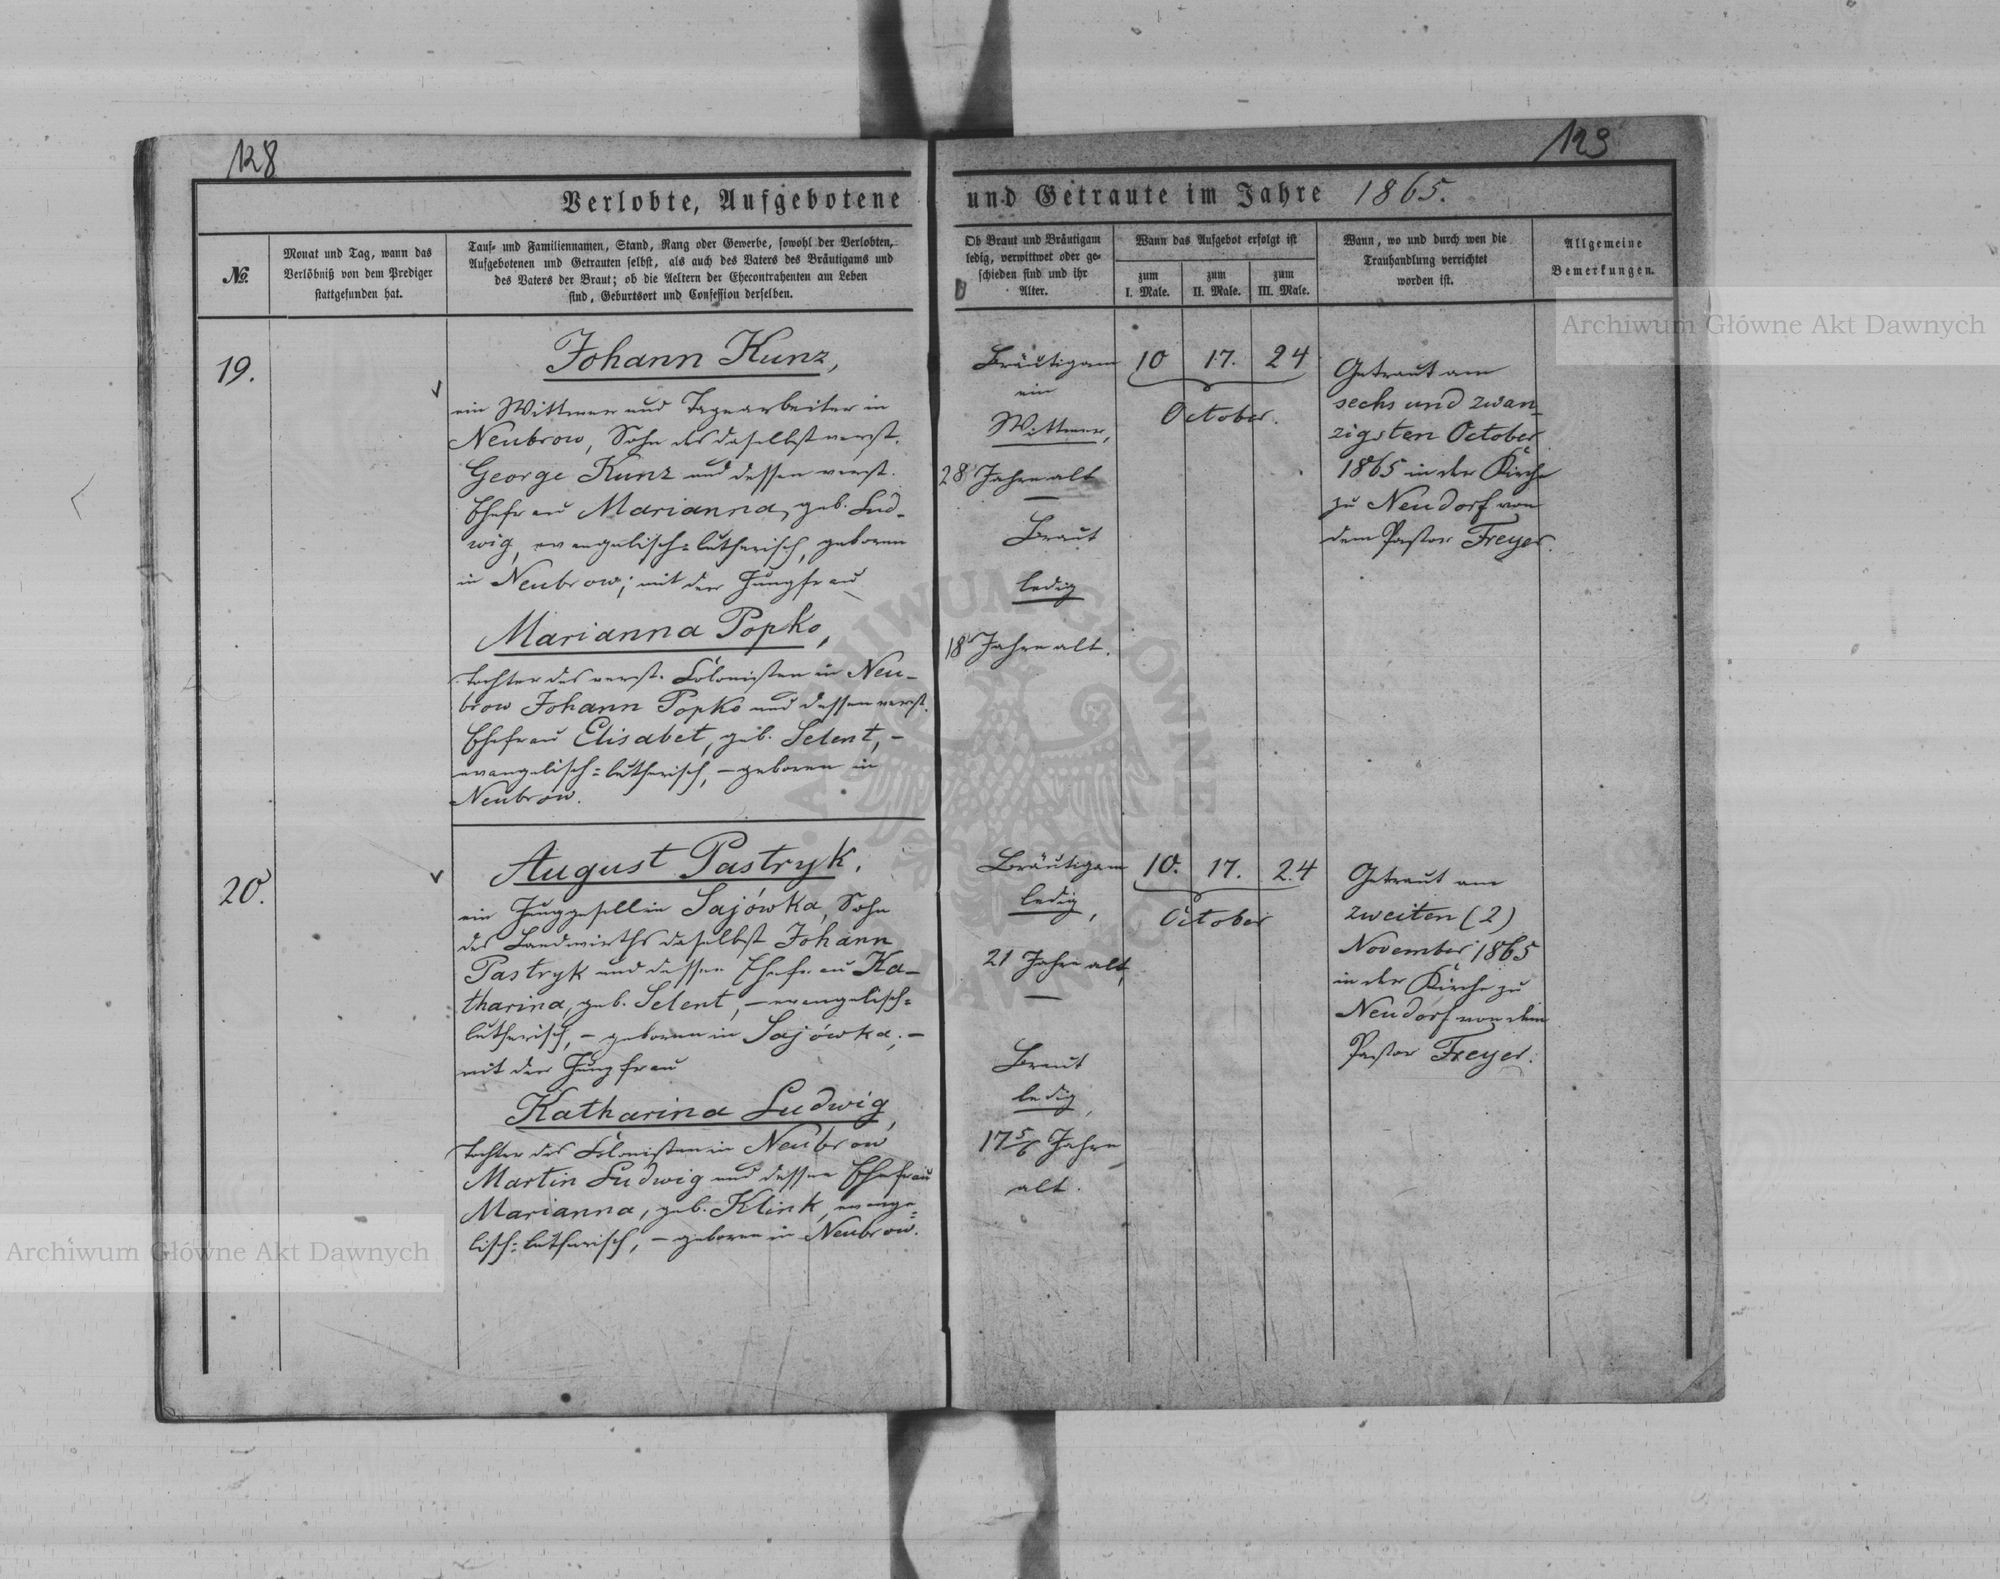 128
129
Verlobte, Aufgebotene und Getraute im Jahre 1865.
№.
Monat und Tag, wann das
Verlöbniß von dem Prediger
stattgefunden hat.
Tauf- und Familiennamen, Stand, Rang oder Gewerbe, sowohl der Verlobten,
Aufgebotenen und Getrauten selbst, als auch des Vaters des Bräutigams und
des Vaters der Braut; ob die Aeltern der Ehecontrahenten am Leben
sind, Geburtsort und Confession derselben.
Ob Braut und Bräutigam
ledig, verwittwet oder ge-
schieden sind und ihr
Alter.
Wann das Aufgebot erfolgt ist
zum
I. Male.
zum
II. Male.
zum
III. Male.
Wann, wo und durch wen die
Trauhandlung verrichtet
worden ist.
Allgemeine
Bemerkungen.
19.
Johann Kunz,
ein Wittwer und Tagearbeiter in
Neubrow, Sohn des daselbst verst.
George Kunz und dessen verst.
Ehefrau Marianna, geb. Lud-
wig, evangelisch=lutherisch, geboren
in Neubrow; mit der Jungfrau
Marianna Popko,
Tochter des verst. Colonisten in Neu-
brow Johann Popko und dessen verst.
Ehefrau Elisabet, geb. Selent, -
evangelisch=lutherisch, - geboren in
Neubrow.
Bräutigam
ein
Wittwer,
28 Jahre alt
Braut
ledig
18 Jahre alt.
10 17. 24
October.
Getraut am
sechs und zwan-
zigsten October
1865 in der Kirche
zu Neudorf von
dem Pastor Freyer.
20.
August Pastryk,
ein Junggesell in Sajówka, Sohn
des Landwirths daselbst Johann
Pastryk und dessen Ehefrau Ka-
tharina, geb. Selent, - evangelisch=
lutherisch, - geboren in Sajówka; -
mit der Jungfrau
Katharina Ludwig,
Tochter des Colonisten in Neubrow
Martin Ludwig und dessen Ehefrau
Marianna, geb. Klink, evange=
lisch=lutherisch, - geboren in Neubrow.
Bräutigam
ledig,
21 Jahre alt,
Braut
ledig,
17 5/6 Jahre
alt.
10. 17. 24
October
Getraut am
zweiten (2)
November 1865
in der Kirche zu
Neudorf von dem
Pastor Freyer.
Archiwum Główne Akt Dawnych
Archiwum Główne Akt Dawnych